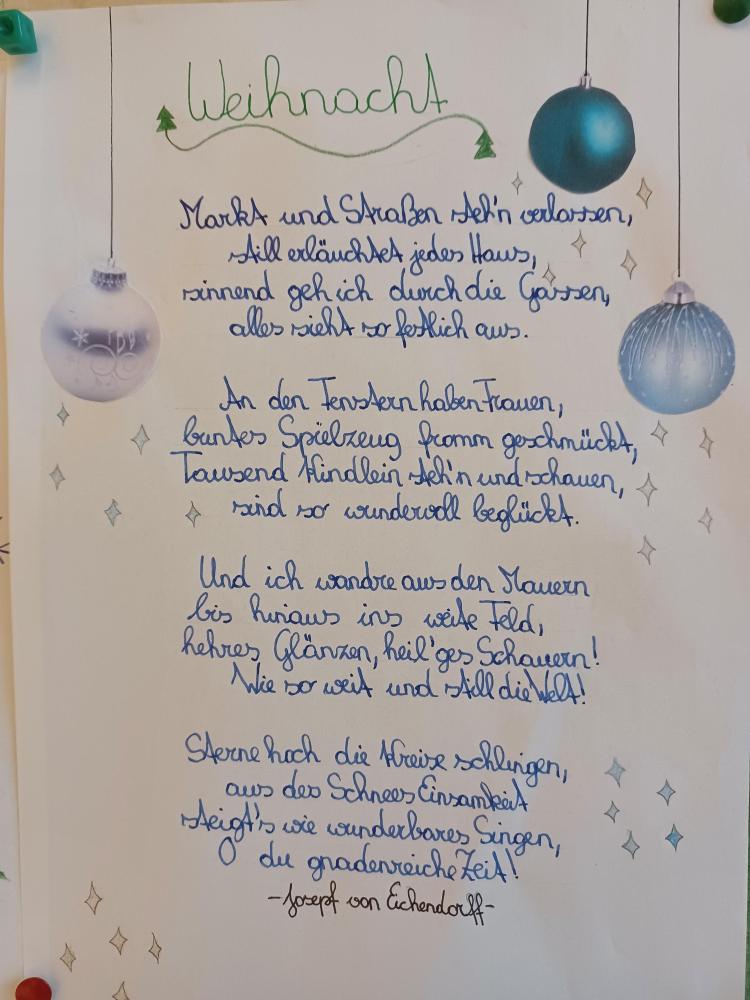 Weihnacht
Markt und Straßen steh'n verlassen,
still erläuchtet jedes Haus,
sinnend geh ich durch die Gassen,
alles sieht so festlich aus.
An den Fenstern haben Frauen,
buntes Spielzeug fromm geschmückt,
Tausend Kindlein steh'n und schauen,
sind so wundervoll beglückt.
Und ich wandre aus den Mauern
bis hinaus ins weite Feld,
hehres Glänzen, heil'ges Schauern!
Wie so weit und still die Welt!
Sterne hoch die Kreise schlingen,
aus des Schnees Einsamkeit
steigt's wie wunderbares Singen,
O du gnadenreiche Zeit!
-Josepf von Eichendorff-